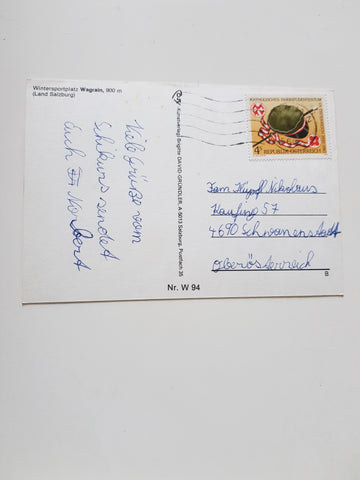 Wintersportplatz Wagrain, 900 m
(Land Salzburg)
Viele Grüsse vom
Schikurs sendet
Euch Norbert
Kunstverlag Brigitte DAVID-GRÜNDLER, A-5013 Salzburg, Postfach 35
Nr. W 94
REPUBLIK ÖSTERREICH
Fam Nikolaus
Kaufing 57
4690 Schwanenstadt
Oberösterreich
B